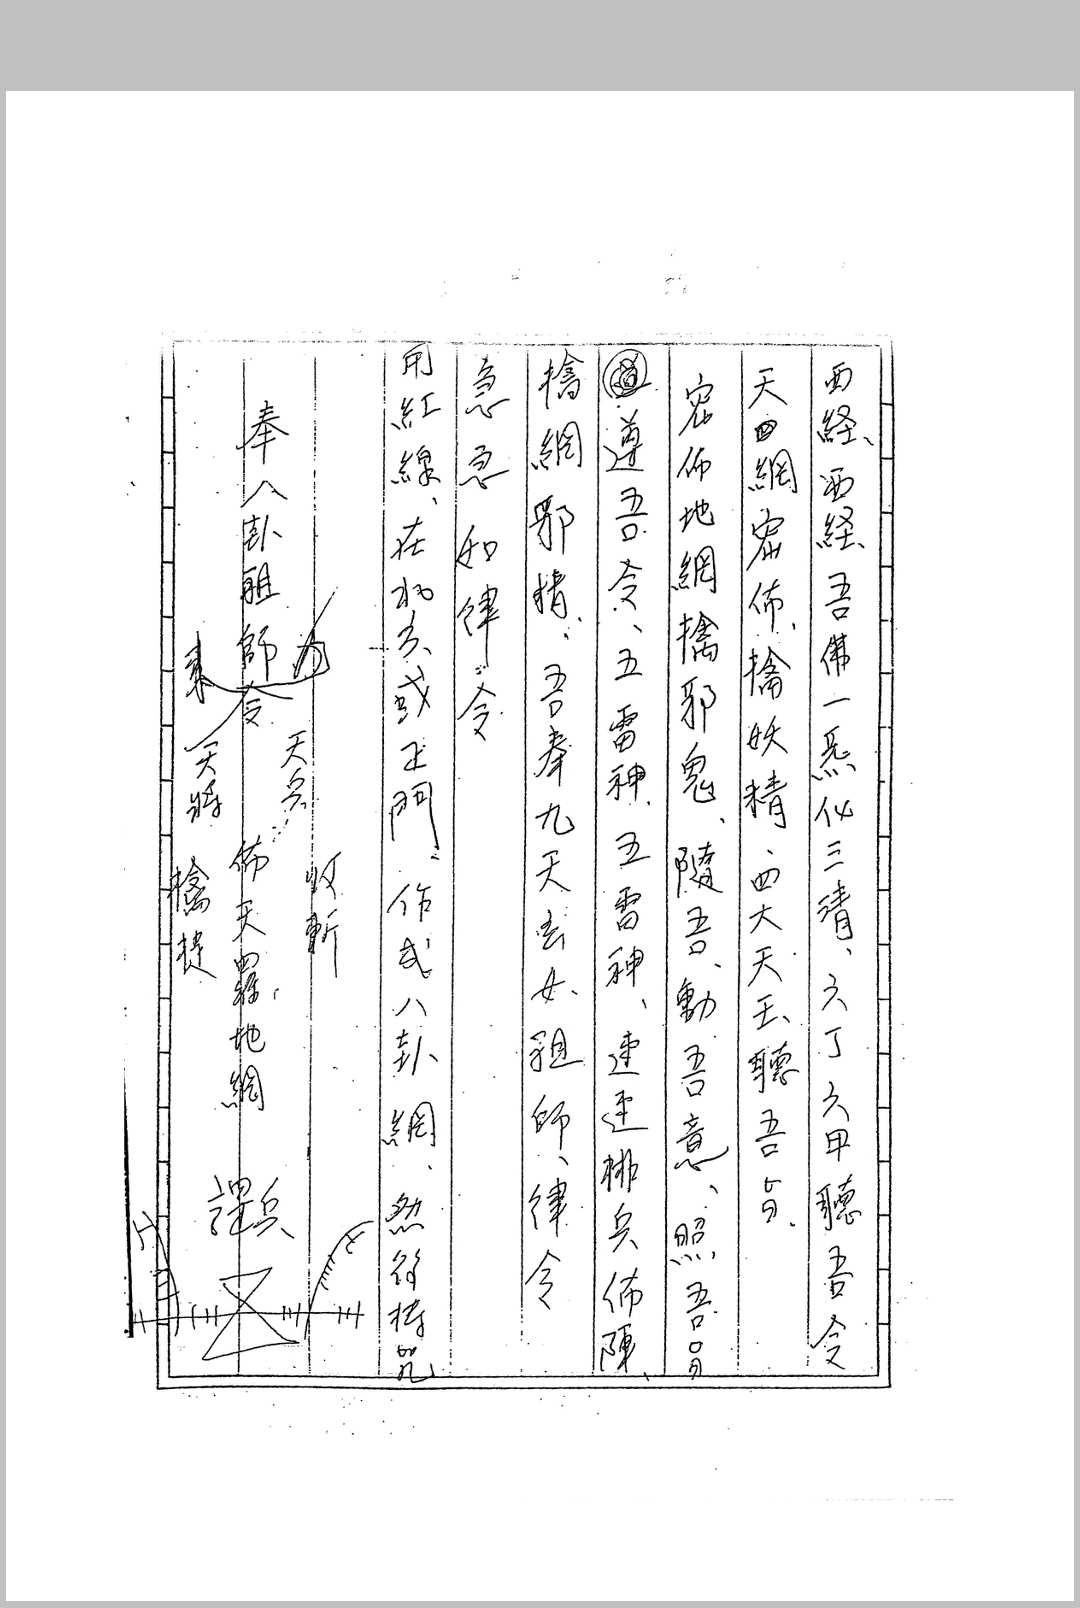 西経、西経、吾佛一炁化三清、六丁六甲聽吾令
天網密佈、擒妖精、四大天王、聽吾旨、
密佈地網擒邪鬼、隨吾、動吾意、照吾旨
遵吾令、五雷神、五雷神、速速排兵佈陣、
擒綑邪精、吾奉九天玄女、祖師、律令
急急如律令
用紅線、在㧣或正門、作成八卦網、然後持咒
收斬
天兵
奉八卦祖師令
佈天羅地網
兵
天將
擒捉